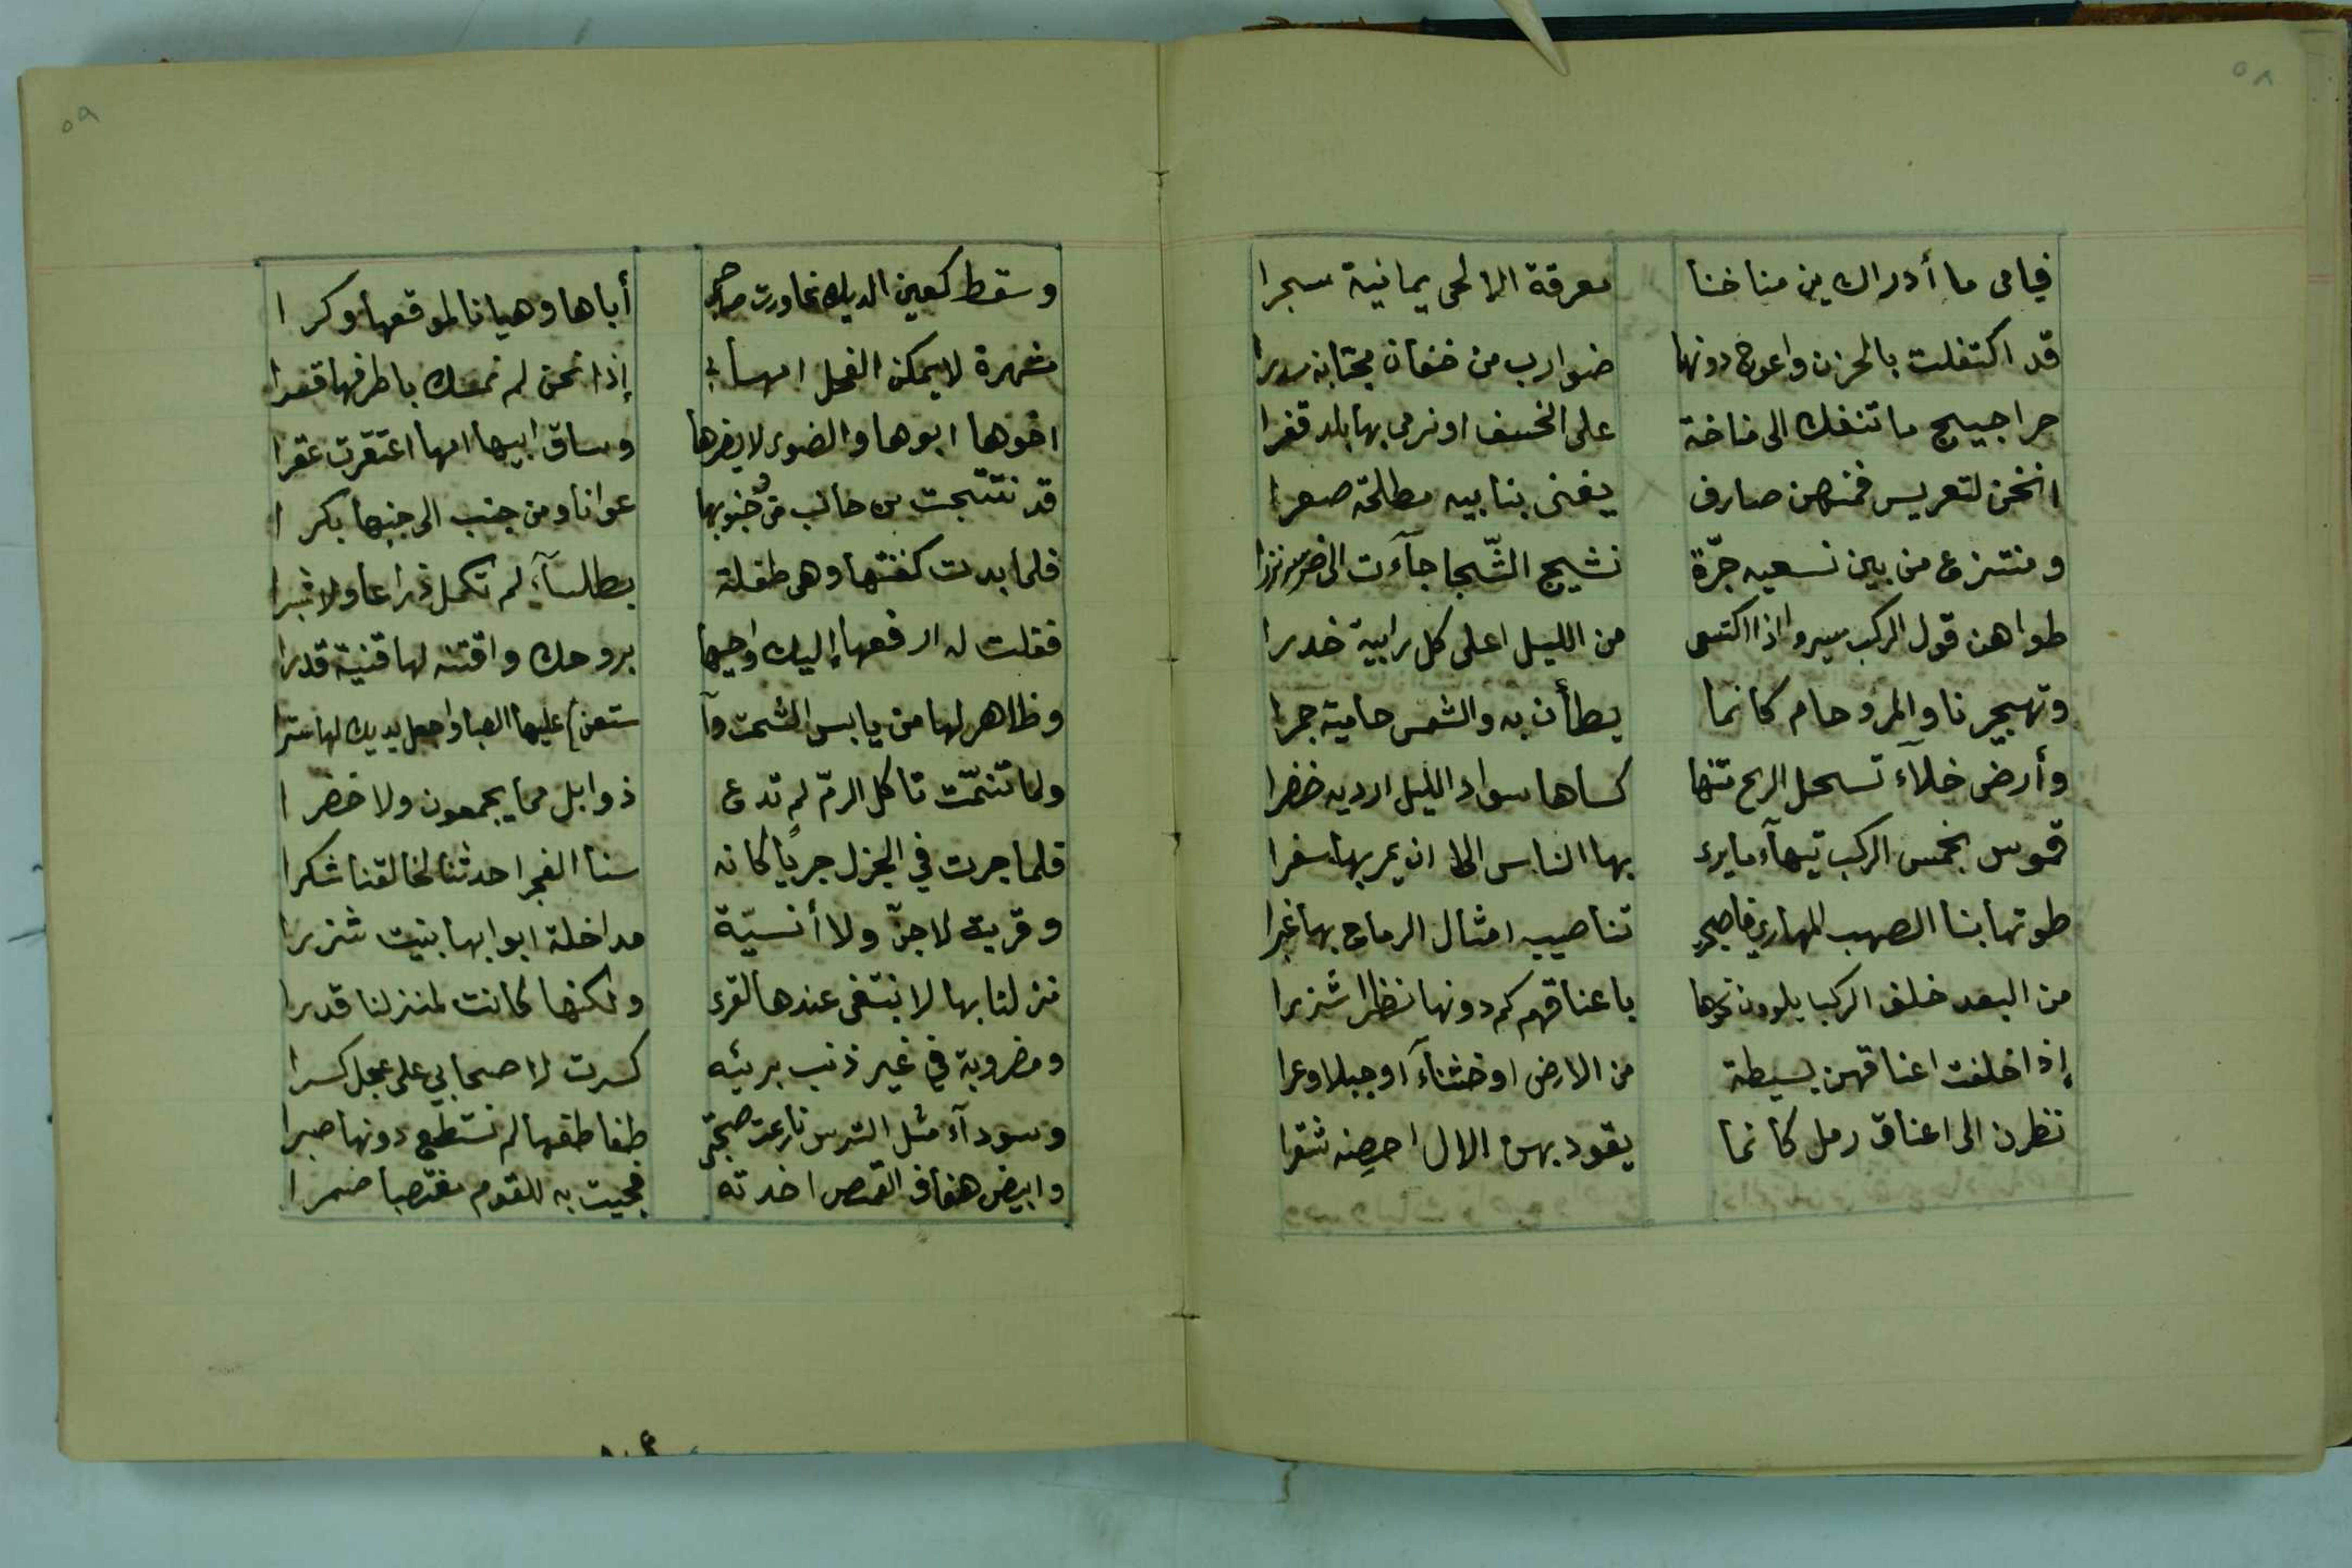 ٥٨
فيامى ما أدراك ين مناخنا معرقة الالحى يمانية سجرا
قد اكتفلت بالحزن واعوج دونها ضوارب من خفان مجتابه سدرا
حراجيج ما تنفك الى مناخة على الخسف او نرمى بها بلد قفرا
انخن لتعريس فمنهن صارف يغنى بنابيه مطلحة صعرا
ومنتزع من بين نسعيه جرّة نشيج الشّجا جآءت الى ضرسه نزرا
طواهن قول الركب سيروا اذا اكتسى من الليل اعلى كل رابية خدرا
وتهجيرنا والمرو حام كانما يطأن به والشمس حامية جمرا
وأرض خلآء تسحل الريح متنها كساها سواد الليل ارديه خضرا
قموس بخمس الركب تيهآء ما يرى بها الناس الا ان يمر بها سفرا
طوتها بنا الصهب المهارى فاصبحو تناصيبه امثال الرماح بها غبرا
من البعد خلف الركب يلوون نحوها باعناقهم كم دونها نظرا شزرا
إذا خلفت اعناقهن بسيطة من الارض او خشنآء او جبلا وعرا
نظرن الى اعناق رمل كانما يقود بهن الال احصنه شقرا
٥٩
وسقط كعين الديك عاورت أباها وهيانا لموقعها وكرا
مشهرة لا يمكن الفحل امها إذا نحن لم نمسك باطرفها قفدا
اخوها ابوها والضوى لا يضرها وساق ابيها امها اعتقرت عقرا
قد نتتجت من جانب من جنوبها عوانا ومن جنب الى جنبها بكرا
فلما بدت كفنتها وهى طفلة بطلسآء لم تكمل ذراعا ولا شبرا
فقلت له ارفعها إليك واحيها بروحك واقتته لها قنية قدرا
وظاهر لها من يابس الشخت وآ ستعن) عليها الصبا واجعل يديك لها سترا
ولما تنمّت تاكل الرمّ لم تدع ذوابل مما يجمعون ولا خضرا
فلما جرت في الجزل جريًا كانه سنا الفجر احدثنا لخالقنا شكرا
وقرية لا جنّ ولا أنسيّة مداخلة ابوابها بنيت شزرا
نزلنا بها لا نبتغى عندها القرى ولكنها كانت لمنزلنا قدرا
ومضروبة في غير ذنب بريئه كسرت لاصحابي على عجل كسرا
وسودآء مثل الترس نازعت صحبتى طفا طفها لم نستطع دونها صبرا
وابيض هفاف القمص اخذته فجيت به للقوم مغتصبا ضمرا